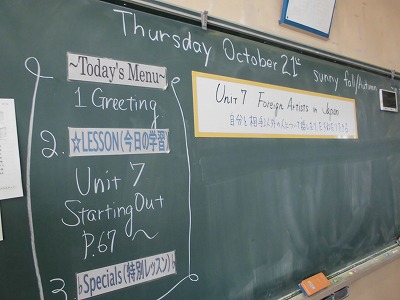 Thursday October 21st sunny fall/Autumn
~Today's Menu~
1 Greeting
2. ☆LESSON(今日の学習)
Unit 7
Starting Out
P.67 ~
3. ♭Specials(特別レッスン)♭
Unit 7 Foreign Artists in Japan
自分と相手以外の人について